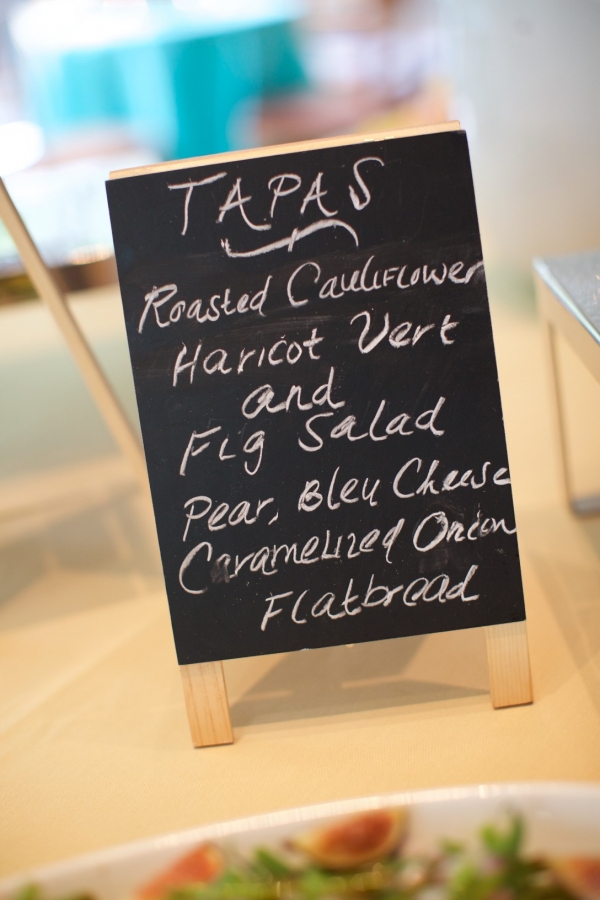 TAPAS
Roasted Cauliflower
Haricot Vert
and
Fig Salad
Pear, Bleu Cheese
Caramelized Onion
Flatbread